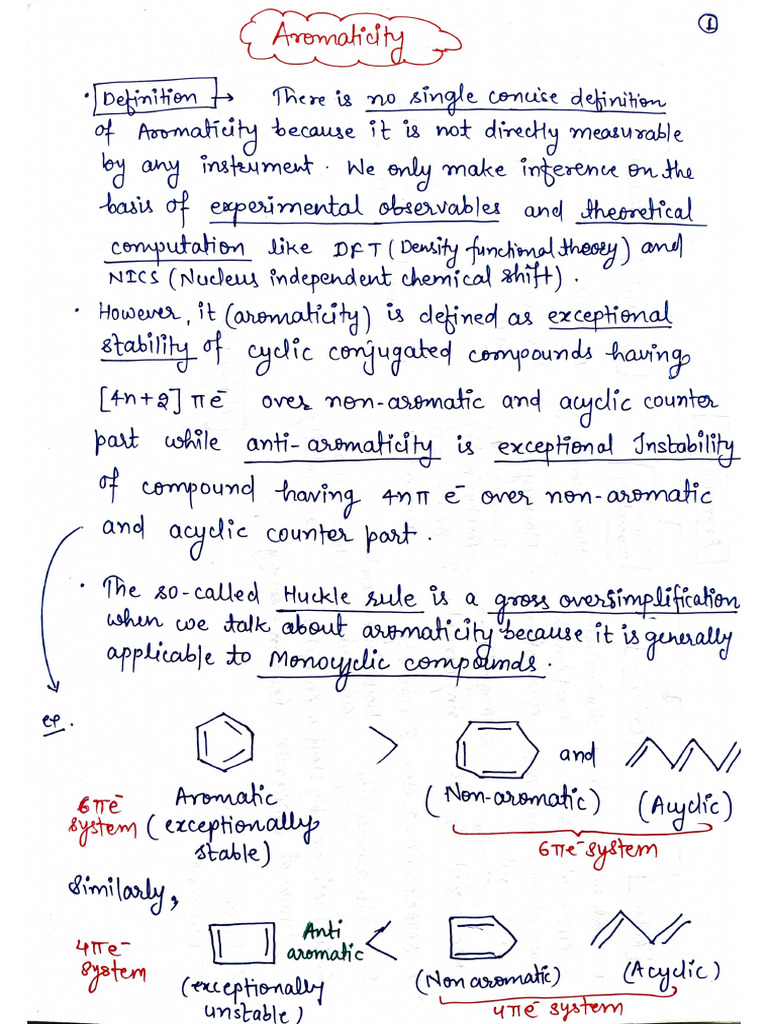 1
Aromaticity
• Definition → There is no single concise definition
of Aromaticity because it is not directly measurable
by any instrument. We only make inference on the
basis of experimental observables and theoretical
computation like DFT (Density functional theory) and
NICS (Nucleus independent chemical shift).
• However, it (aromaticity) is defined as exceptional
stability of cyclic conjugated compounds having
[4n+2] πe⁻ over non-aromatic and acyclic counter
part while anti-aromaticity is exceptional Instability
of compound having 4nπ e⁻ over non-aromatic
and acyclic counter part.
• The so-called Huckle rule is a gross oversimplification
when we talk about aromaticity because it is generally
applicable to Monocyclic compounds.
ex.
> and
6πe⁻ system
Aromatic (exceptionally stable)
(Non-aromatic) (Acyclic)
6πe⁻ system
Similarly,
4πe⁻ system
Anti aromatic <
(exceptionally unstable)
(Non aromatic) (Acyclic)
4πe⁻ system